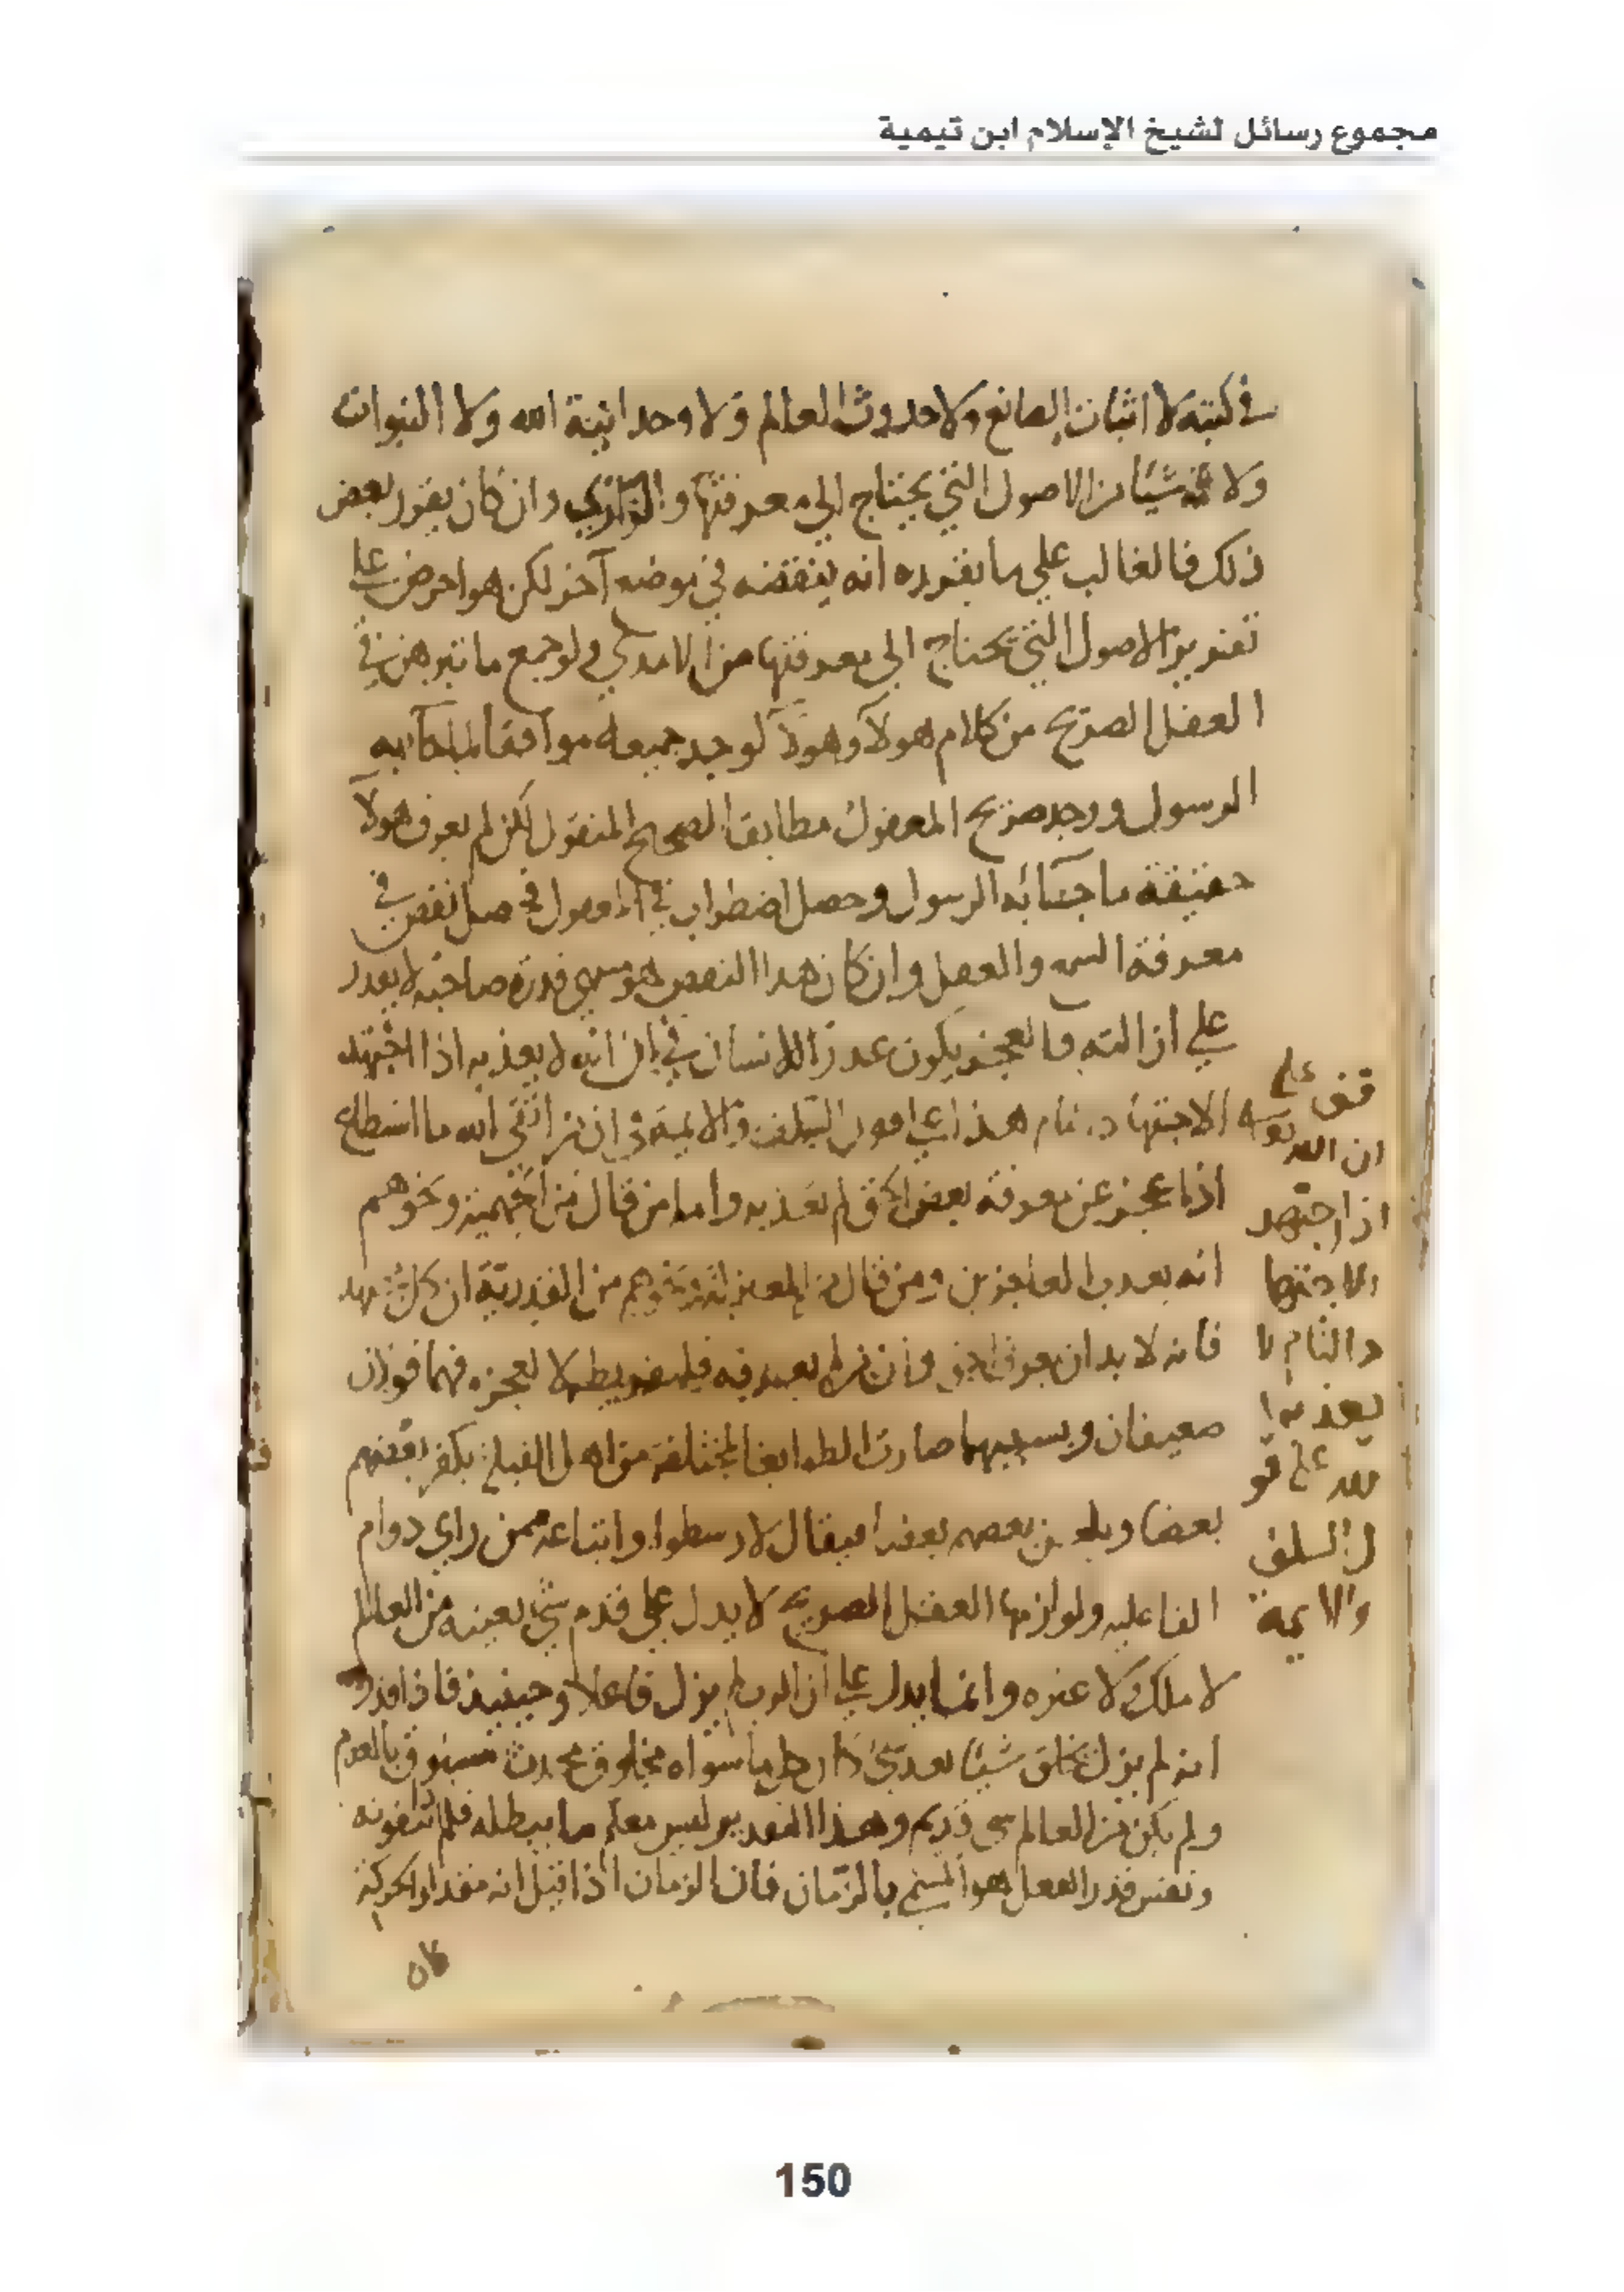 مجموع رسائل لشيخ الإسلام ابن تيمية
في كتبه لا اثبات الصانع ولا حدوث العالم ولا وحدانية الله ولا النبوات
ولا شيئا من الاصول التي يحتاج الي معرفتها والرازي وان كان يقرر بعض
ذلك فالغالب علي ما يقرره انه ينقضه في موضع آخر لكن هو احرص علي
تقرير الاصول التي تحتاج الى معرفتها من الامدي ولو جمع ما تبرهن في
العقل الصريح من كلام هولآ وهولآ لوجد جميعه موافقا لما جآ به
الرسول ووجد صريح المعقول مطابقا لصحيح المنقول لكن لم يعرف هولآ
حقيقة ما جآ به الرسول وحصل اضطراب في المعقول فحصل نقص في
معرفة السمع والعقل وان كان هدا النقص هو منتهي قدرة صاحبه لا يقدر
علي ازالته فالعجز يكون عدرا للانسان في ان الله لا يعذبه اذا اجتهد
الاجتهاد التام هذا علي قول السلف والايمة في ان من اتقى الله ما استطاع
اذا عجز عن معرفة بعض الحق لم يعذب به واما من قال من الجهمية ونحوهم
انه يعدب العاجزين ومن قال من المعتزلة ونحوهم من القدرية ان كل مجتهد
فانه لا بد ان يعرف الحق وان من لم يعرفه فلتفريطه لا لعجزه فهما قولان
ضعيفان وبسببهما صارت الطوايف المختلفة من اهل القبلة يكفر بعضهم
بعضا ويلعن بعضهم بعضا فيقال لارسطوا واتباعه ممن راي دوام
الفاعليه ولوازمها العقل الصريح لا يدل علي قدم شئ بعينه من العالم
لا فلك ولا غيره وانما يدل علي ان الرب لم يزل فاعلا وحينيذ فاذا قدر
انه لم يزل يخلق شيئا بعد شئ كان كل ما سواه مخلوق محدث مسبوق بالعدم
ولم يكن من العالم شي قديم وهذا التقدير ليس معكم ما يبطله فلماذا تنفونه
ونفس قدر الفعل هو المسمى بالزمان فان الزمان اذا قيل انه مقدار الحركة
كان
قف على
ان الله تع
اذا اجتهد
الاجتها
د التام لا
يعذب
الله على قو
ل السلف
والايمة
150